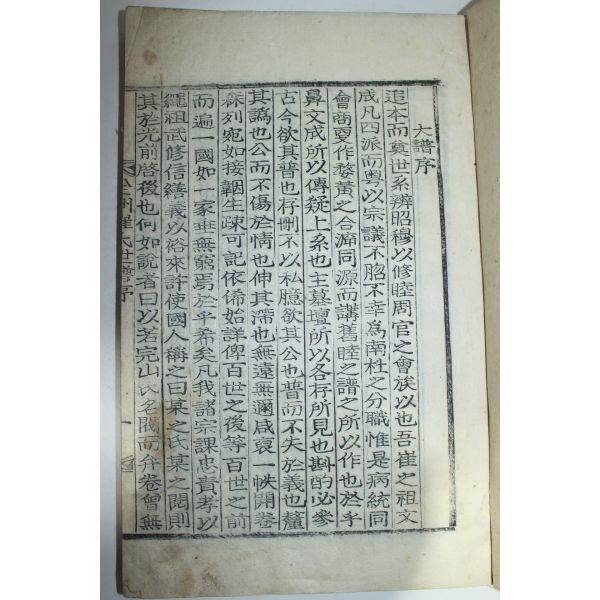 大譜序
追本而奠世系辨昭穆以修睦周官之會族以也吾崔之祖文
成凡四派而粤以宗議不脗不幸爲南杜之分職惟是病統同
會商夏作婺黄之合渧同源而講舊睦之譜之所以作也於乎
鼻文成所以傳疑上系也主墓壇所以各存所見也斟酌必參
古今欲其普也存刪不以私臆欲其公也普而不失於義也釐
其譌也公而不傷於情也伸其滯也無遠無邇咸裒一帙開卷
森列宛如接韌生疎可記依俙始詳俾百世之後等百世之前
而遍一國如一家垂無窮焉於乎希矣凡我諸宗課忠責孝以
繩祖武修信繕義以裕來許使國人稱之曰某之氏某之閥則
其於光前啓後也何如說者曰以若完山氏名閥而弁卷會無
全州崔氏世譜序 一